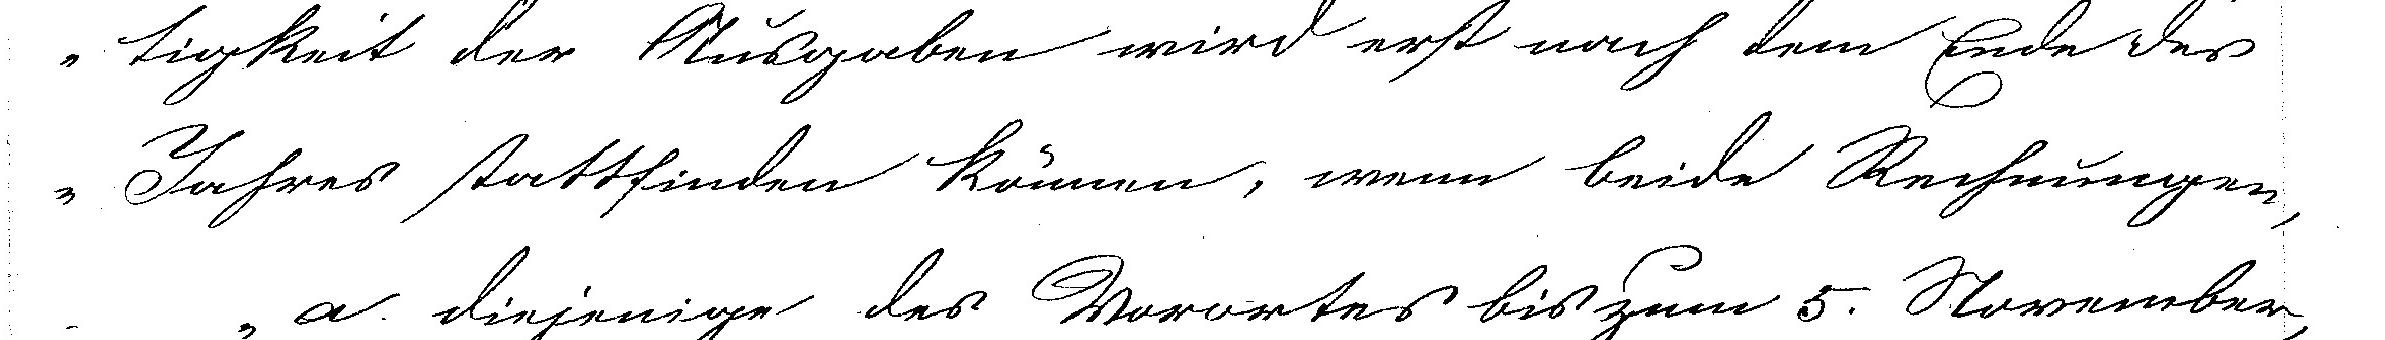 „tigkeit der Ausgaben wird erst nach dem Ende des
„Jahres stattfinden können, wenn beide Rechnungen,
„a. diejenige des Vorortes bis zum 5. November,